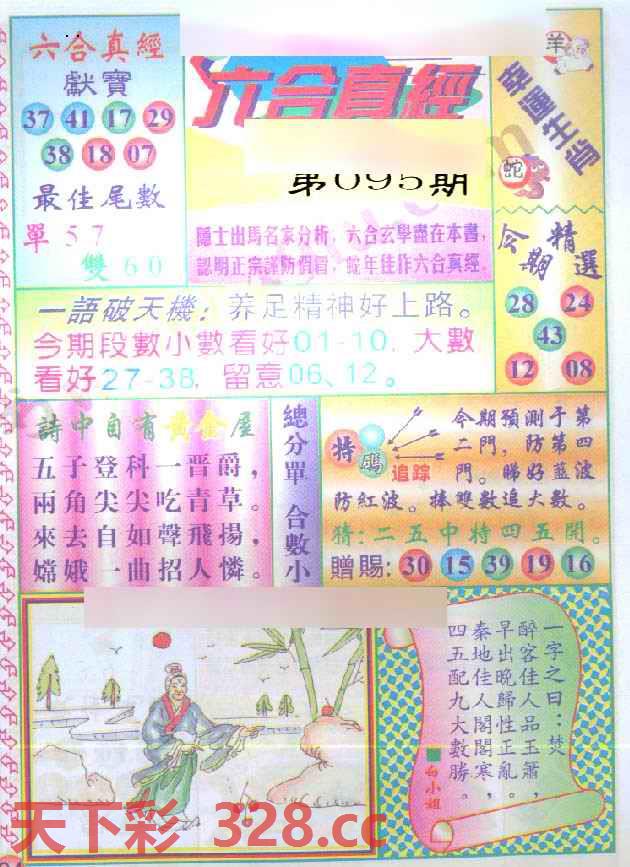 六合真經
獻寶
37 41 17 29
38 18 07
最佳尾數
單57
雙60
六合真經
第095期
隱士出馬名家分析，六合玄學盡在本書，
認明正宗謹防假冒，蛇年佳作六合真經。
羊
幸運生肖
蛇
今期精選
28 24
43
12 08
一語破天機：养足精神好上路。
今期段數小數看好01-10，大數
看好27-38，留意06、12。
詩中自有黃金屋
五子登科一晋爵，
兩角尖尖吃青草。
來去自如聲飛揚，
嫦娥一曲招人憐。
總分單 合數小
特碼
追踪
今期預測于第
二門，防第四
門。睇好藍波
防紅波。捧雙數追大數。
猜：二五中特四五開。
贈賜：30 15 39 19 16
一字之曰：焚
醉客佳人品玉簫，
早出晚歸性正亂。
秦地佳人閣閣寒，
四五配九大數勝。
白小姐
天下彩 328.cc